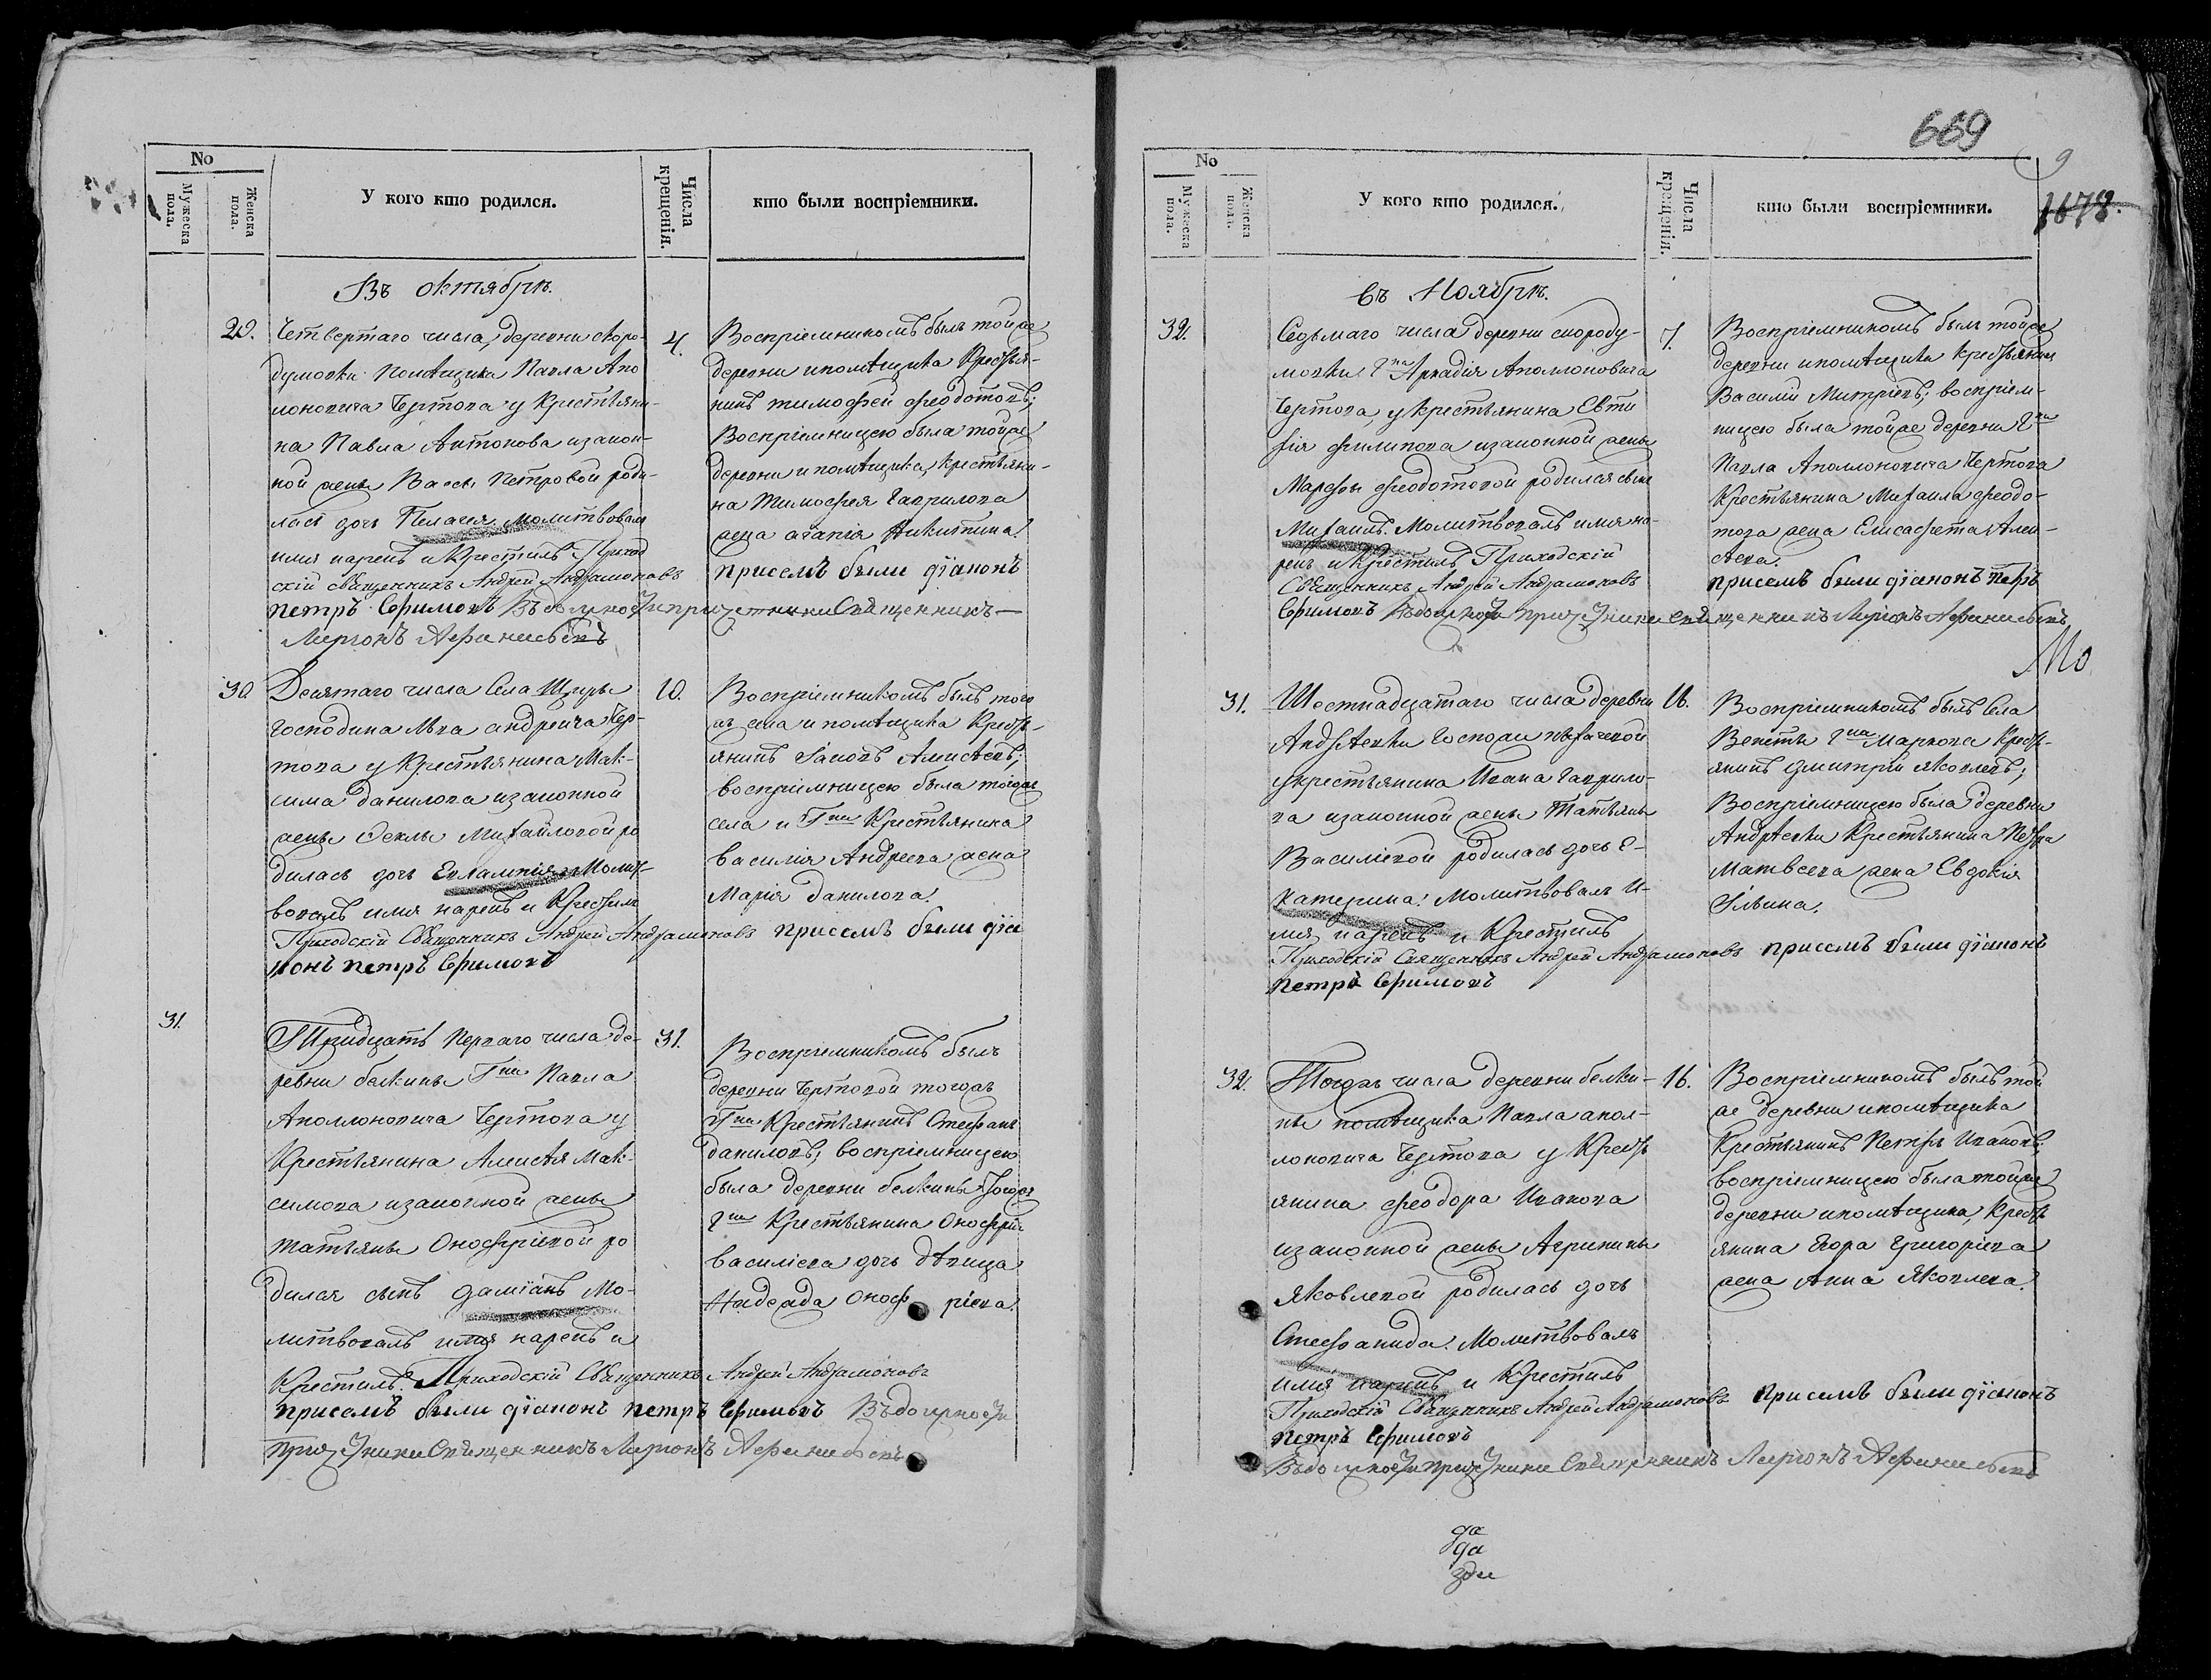 No
Мужеска пола.
Женска пола.
У кого кто родился.
Числа крещенія.
кто были воспріемники.
Въ октябрѣ.
29.
Четвертаго числа, деревни скоро-
думовки помѣщика Павла Апо
лоновича Чертова у крестьяни-
на Павла Антонова изакон-
ной жены Вассы Петровой роди-
лась дочь Пелагея Молитвовалъ
имя нарекъ и Крестилъ Приход
скій Священникъ Андрей Андрамоновъ
петръ Ефимовъ Въдолжности причетника Священникъ
Ларіонъ Афанасьевъ
4.
Воспріемникомъ былъ тойже
деревни ипомѣщика Крестья-
нинъ тимофей феодотовъ;
Воспріемницею была тойже
деревни и помѣщика, крестьяни-
на Тимофея Гаврилова
жена агапія Никитина.
присемъ были діаконъ
30
Десятаго числа Села Щигры
господина Льва андреича Чер-
това у Крестьянина Мак-
сима данилова изаконной
жены Феклы Михайловой ро
дилась дочь Евлампія Молит-
вовалъ имя нарекъ и Крестилъ
Приходскій Священникъ Андрей Андрамоновъ присемъ были діа
конъ петръ Ефимовъ
10.
Воспріемникомъ былъ того
жъ села и помѣщика Кресть-
янинъ Іаковъ Алисѣевъ;
воспріемницею была тогожъ
села и Гна Крестьянина
василія Андреева жена
Марія данилова.
31.
Тридцать перваго числа де-
ревни белкины Гна Павла
Аполлоновича Чертова у
крестьянина Алисѣя Мак-
симова изаконной жены
татьяны Оноофріевой ро
дился сынъ даміанъ Мо-
литвовалъ имя нарекъ и
Крестилъ. Приходскій Священникъ Андрей Андрамоновъ
присемъ были діаконъ петръ Ефимовъ Въдолжности
причетника Священникъ Ларіонъ Афанасьевъ
31.
Воспріемникомъ былъ
деревни Чертовой тогожъ
Гна Крестьянинъ Стефанъ
даниловъ; воспріемницею
была деревни белкины тогожъ
Гна Крестьянина Оноофрія
василіева дочь дѣвица
Надежда Оноф ріева.
669
9
1678.
No
Мужеска пола.
Женска пола.
У кого кто родился.
Числа крещенія.
кто были воспріемники.
въ Ноябрѣ.
32.
Седьмаго числа деревни скороду-
мовки Гна Аркадія Аполлоновича
Чертова, у крестьянина Евти
фія филипова изаконной жены
Марфы феодотовой родился сынъ
Михаилъ. Молитвовалъ имя на-
рекъ и Крестилъ Приходскій
Священникъ Андрей Андрамоновъ
Ефимовъ Въдолжности причетника священникъ Ларіонъ Афанасьевъ
7.
Воспріемникомъ былъ тойже
деревни ипомѣщика крестьянинъ
Василій Митріевъ; воспріем-
ницею была тойже деревни Гна
Павла Аполлоновича Чертова
Крестьянина Михаила феодо-
това жена Елисафета Алек-
сѣева.
присемъ были діаконъ Петръ
Мо
31.
Шестнадцатаго числа деревни
Андрѣевки Госпожи
укрестьянина Ивана Гаврило-
ва изаконной жены Татьяны
Василіевой родилась дочь Е-
катерина. Молитвовалъ и-
мя нарекъ и Крестилъ
Приходскій Священникъ Андрей Андрамоновъ присемъ были діаконъ
петръ Ефимовъ
16.
Воспріемникомъ былъ Села
Гна Маркова Кресть-
янинъ дмитрій яковлевъ;
Воспріемницею была деревни
Андрѣевки Крестьянина Петра
Матвеева жена Евдокія
Ильина.
32.
Тогожъ числа деревни белки-
ны помѣщика Павла апол-
лоновича Чертова у Кресть
янина феодора Иванова
изаконной жены Агрипины
Яковлевой родилась дочь
Стефанида. Молитвовалъ
имя нарекъ и Крестилъ
Приходскій Священникъ Андрей Андрамоновъ присемъ были діаконъ
петръ Ефимовъ
Въдолжности причетника Священникъ Ларіонъ Афанасьевъ
16.
Воспріемникомъ былъ той
же деревни ипомѣщика
Крестьянинъ Петръ Ивановъ,
воспріемницею была тойже
деревни ипомѣщика, Кресть
янина Егора Григоріева
жена Анна Яковлева.